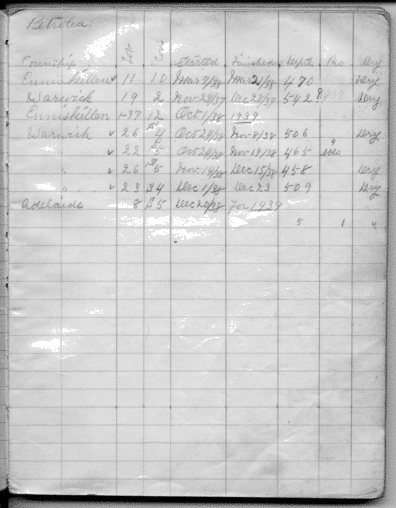 Petrolia.
Township Lot Con Started Finished Depth Pro Dry
Enniskillen 11 10 Mar 9/38 Mar 21/38 470 Dry
Warwick 19 2 Nov 29/37 Dec 29/37 542 Dry
Enniskillen 12 Oct 1/38 1939
Warwick √ 26 4 Oct 29/38 Nov 8/38 506 Dry
" √ 22 5 Oct 24/38 Nov 19/38 465
" √ 26 5 Nov 19/38 Dec 15/38 458 Dry
" √ 23 34 Dec 1/38 Dec 23 509 Dry
Adelaide 8 35 Dec 20/38 For 1939
5 1 4